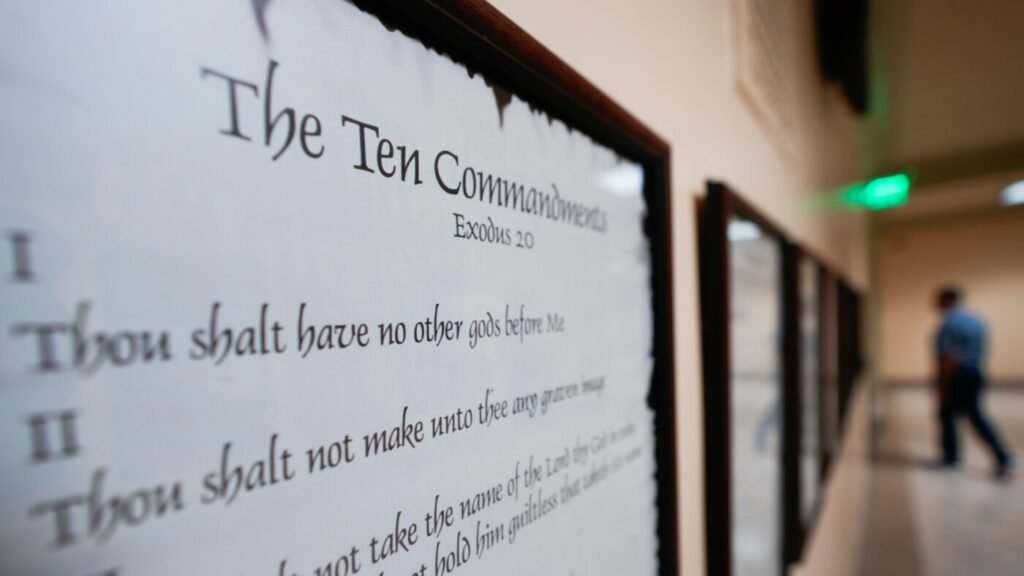 The Ten Commandments
Exodus 20
I
Thou shalt have no other gods before Me
II
Thou shalt not make unto thee any graven image
not take the name of the Lord thy God in
not hold him guiltless that taketh his name